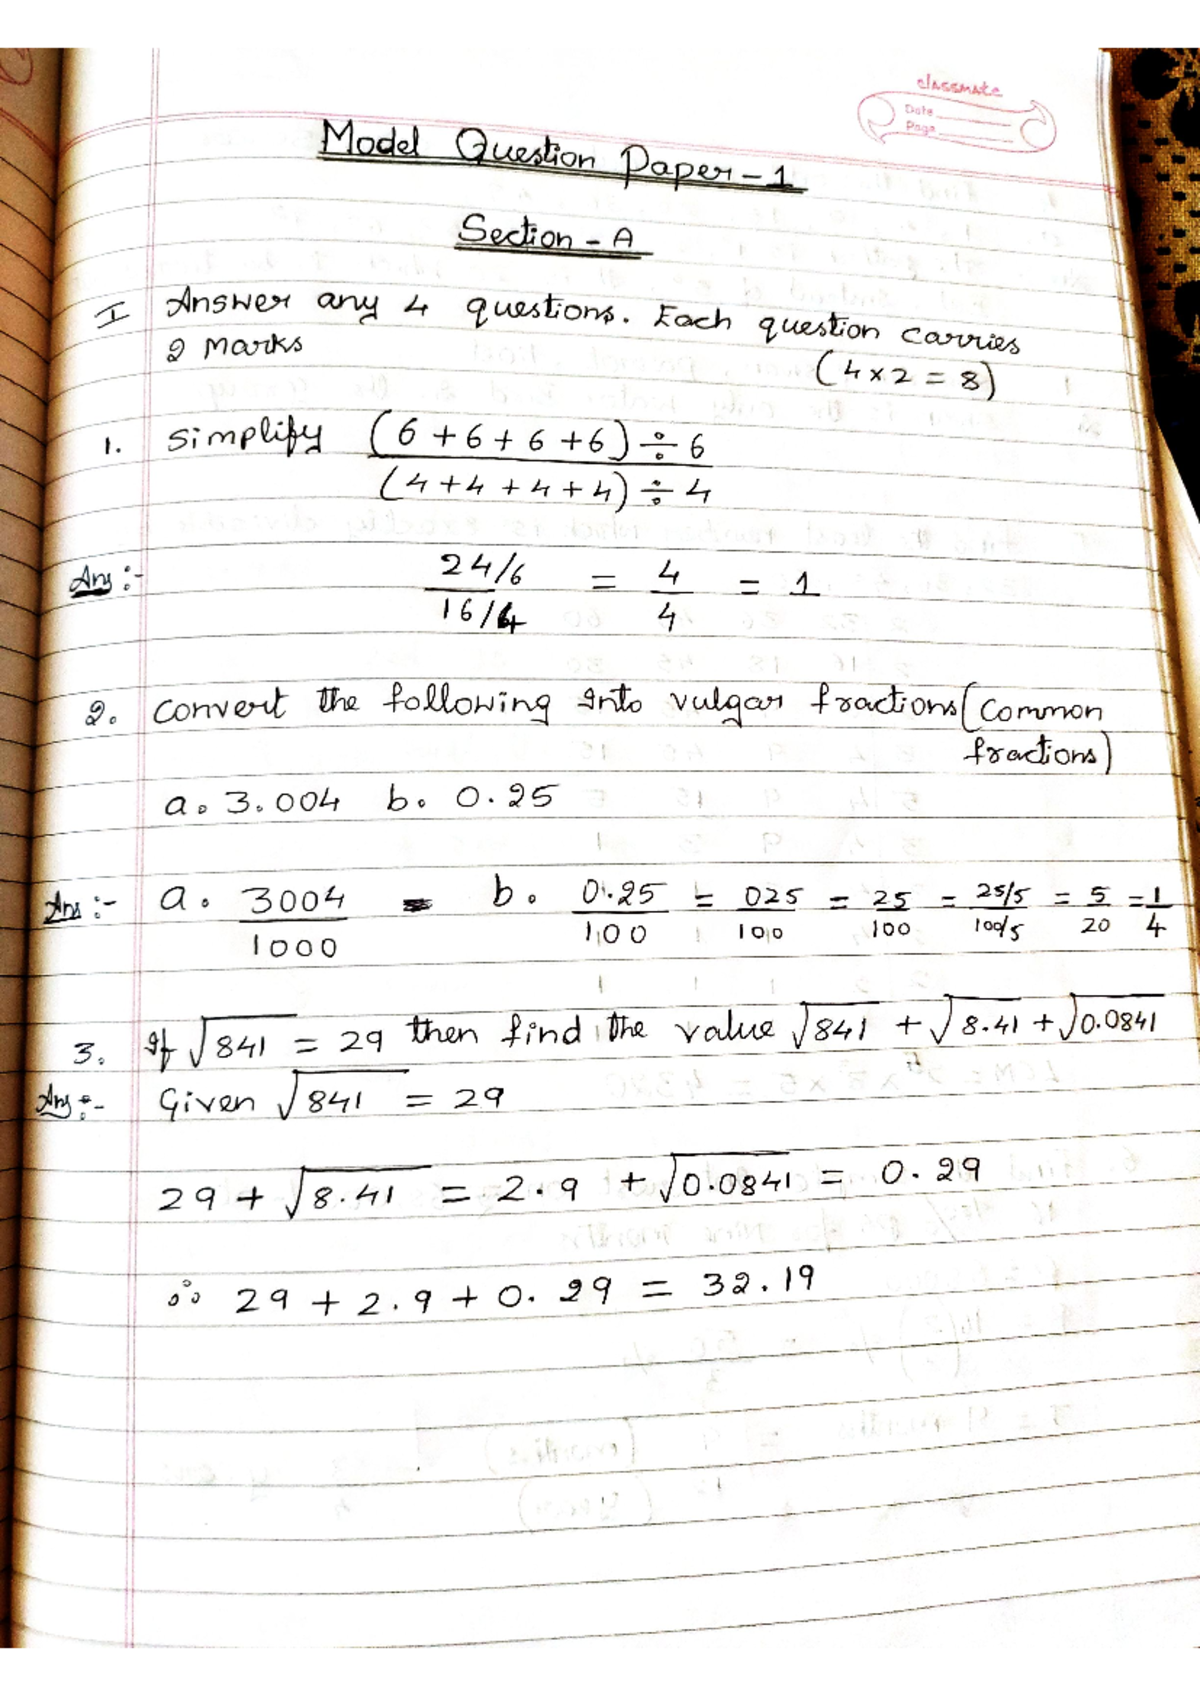 classmate
Date
Page
Model Question Paper-1
Section-A
I Answer any 4 questions. Each question carries
2 Marks (4×2=8)
1. Simplify (6+6+6+6)÷6
(4+4+4+4)÷4
Ans:- 24/6 = 4 = 1
16/4 4
2. Convert the following Into vulgar fractions (Common
fractions)
a. 3.004 b. 0.25
Ans:- a. 3004 b. 0.25 = 025 = 25 = 25/5 = 5 = 1
1000 100 100 100 100/5 20 4
3. If √841 = 29 then find the value √841 + √8.41 + √0.0841
Ans:- Given √841 = 29
29 + √8.41 = 2.9 + √0.0841 = 0.29
∴ 29 + 2.9 + 0.29 = 32.19